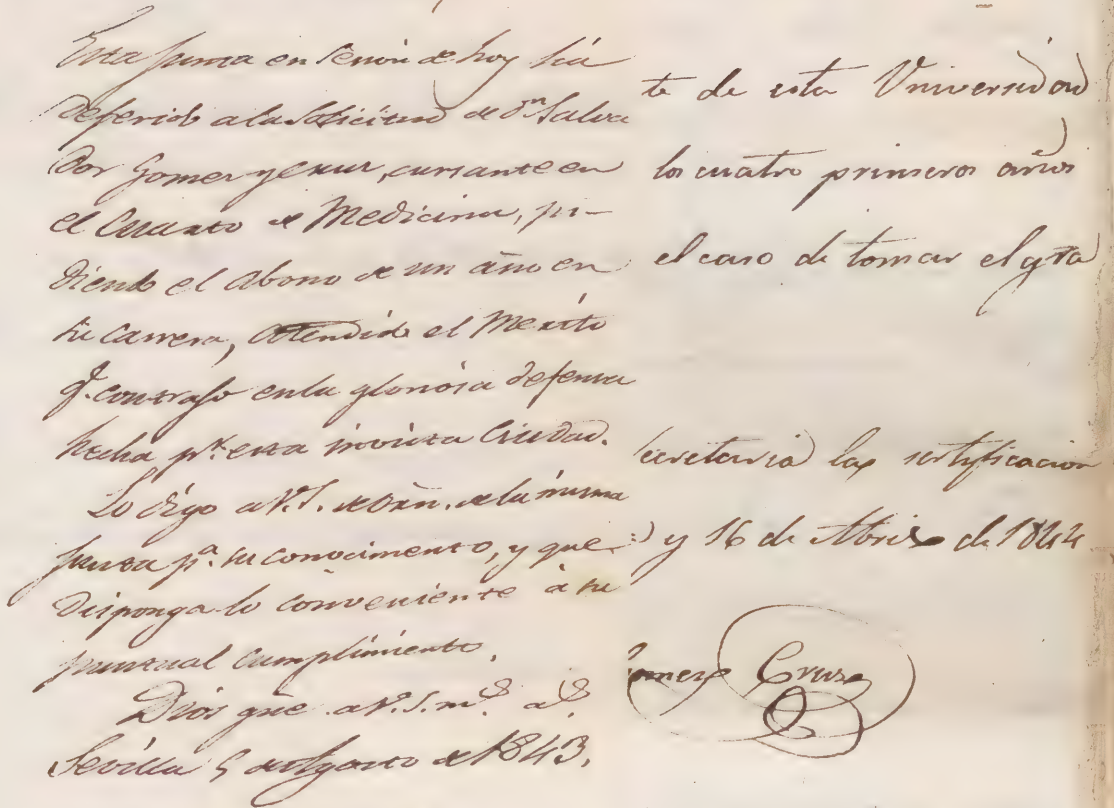 Esta Junta en sesion de hoy há
deferido a la solicitud de Dn. Salva
dor Gomez y Cruz, cursante en
el Cuarto de Medicina, pi-
diendo el abono de un año en
su Carrera, atendido el Merito
q. contrajo en la gloriosa defensa
hecha pr. esta invicta Ciudad.
Lo digo a V.S. de orn. de la misma
Junta pa. su conocimiento, y que
disponga lo conveniente á su
puntual cumplimiento.
Dios gue. a V.S. ms. as.
Sevilla 5 de Agosto de 1843.
te de esta Universidad
los cuatro primeros años
el caso de tomar el gra
Secretaria las sertificacion
y 16 de Abril de 1844
Gomez Cruz